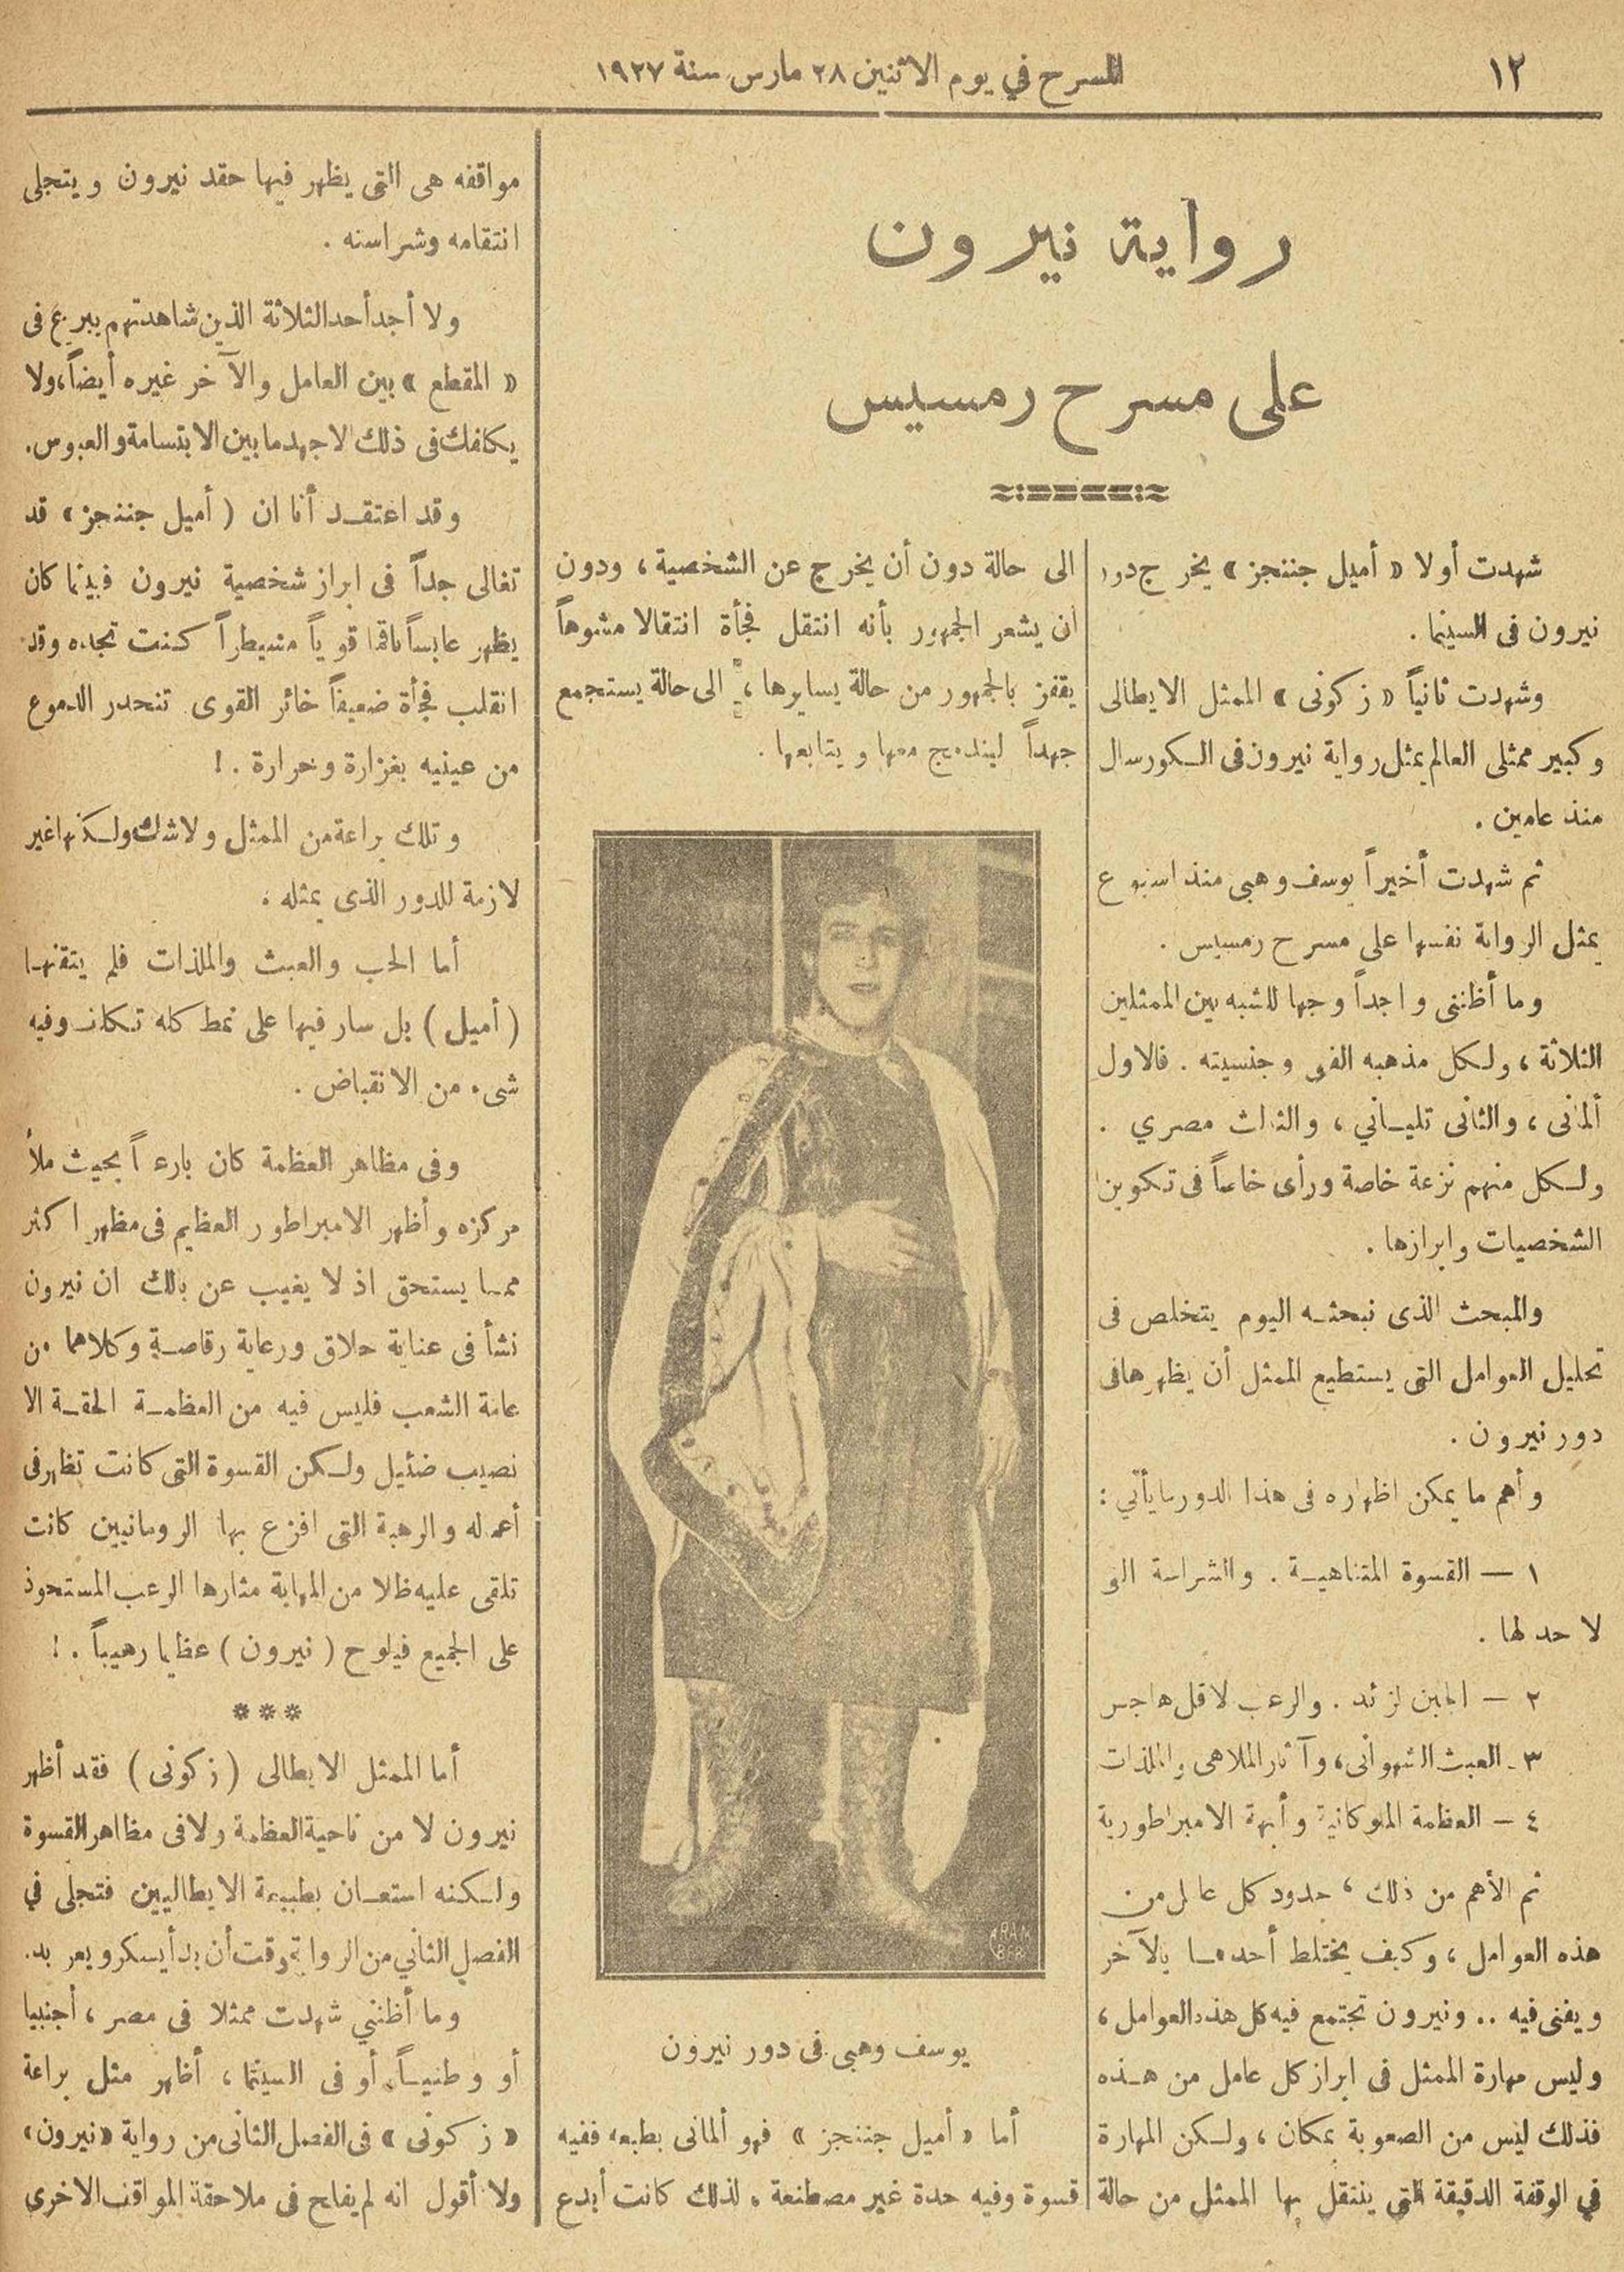 ١٢
المسرح في يوم الاثنين ٢٨ مارس سنة ١٩٢٧
رواية نيرون
على مسرح رمسيس
شهدت أولا « أميل جننجز » يخرج دور
نيرون فى السينما .
وشهدت ثانياً « زكونى » الممثل الايطالى
وكبير ممثلى العالم يمثل رواية نيرون فى الكورسال
منذ عامين .
ثم شهدت أخيراً يوسف وهبى منذ اسبوع
يمثل الرواية نفسها على مسرح رمسيس .
وما أظننى واجداً وجها للشبه بين الممثلين
الثلاثة ، ولكل مذهبه الفى وجنسيته . فالاول
ألمانى ، والثانى تليانى ، والثالث مصري .
ولكل منهم نزعة خاصة ورأى خاصاً فى تكوين
الشخصيات وابرازها .
والمبحث الذى نبحثه اليوم يتخلص فى
تحليل العوامل التى يستطيع الممثل أن يظهرها فى
دور نيرون .
وأهم ما يمكن اظهاره فى هذا الدور ما يأتي :
١ — القسوة المتناهية . والشراسة التى
لا حد لها .
٢ — الجبن الزائد . والرعب لاقل هاجس
٣ - العبث الشهوانى ، وآثار الملاهى والملذات
٤ — العظمة الملوكانية وأبهة الامبراطورية
ثم الأهم من ذلك ، حدود كل عامل من
هذه العوامل ، وكيف يختلط أحدهما بالآخر
ويفنى فيه .. ونيرون تجتمع فيه كل هذه العوامل ،
وليس مهارة الممثل فى ابراز كل عامل من هذه
فذلك ليس من الصعوبة بمكان ، ولكن المهارة
في الوقفة الدقيقة التى ينتقل بها الممثل من حالة
الى حالة دون أن يخرج عن الشخصية ، ودون
أن يشعر الجمهور بأنه انتقل فجأة انتقالا مشوهاً
يقفز بالجمهور من حالة يسايرها ، الى حالة يستجمع
جهداً ليندمج معها ويتابعها .
يوسف وهبى فى دور نيرون
أما « أميل جننجز » فهو ألمانى بطبعه ففيه
قسوة وفيه حدة غير مصطنعة . لذلك كانت أبدع
مواقفه هى التى يظهر فيها حقد نيرون ويتجلى
انتقامه وشراسته .
ولا أجد أحد الثلاثة الذين شاهدتهم يبرع فى
« المقطع » بين العامل والآخر غيره أيضاً ، ولا
يكلفك فى ذلك الا جهد ما بين الابتسامة والعبوس .
وقد اعتقد أنا ان ( أميل جننجز » قد
تغالى جداً فى ابراز شخصية نيرون فبينما كان
يظهر عابساً ناقما قوياً مسيطراً كنت تجده وقد
انقلب فجأة ضعيفاً خائر القوى تنحدر الدموع
من عينيه بغزارة وحرارة . !
وتلك براعة من الممثل ولا شك ولكنها غير
لازمة للدور الذى يمثله .
أما الحب والعبث والملذات فلم يتقنها
( أميل ) بل سار فيها على نمط كله تكلف وفيه
شىء من الانقباض .
وفى مظاهر العظمة كان بارعاً بحيث ملأ
مركزه وأظهر الامبراطور العظيم فى مظهر اكثر
مما يستحق اذ لا يغيب عن بالك ان نيرون
نشأ فى عناية حلاق ورعاية رقاصة وكلاهما من
عامة الشعب فليس فيه من العظمة الحقة الا
نصيب ضئيل ولكن القسوة التى كانت تظهر فى
أعماله والرهبة التى افزع بها الرومانيين كانت
تلقى عليه ظلا من المهابة مثارها الرعب المستحوذ
على الجميع فيلوح ( نيرون ) عظيما رهيباً . !
***
أما الممثل الايطالى ( زكونى ) فقد أظهر
نيرون لا من ناحية العظمة ولا فى مظاهر القسوة
ولكنه استعان بطبيعة الايطاليين فتجلى في
الفصل الثاني من الرواية وقت أن بدأ يسكر ويعربد .
وما أظنني شهدت ممثلا فى مصر ، أجنبيا
أو وطنياً ، أو فى السينما ، أظهر مثل براعة
« زكونى » فى الفصل الثانى من رواية « نيرون »
ولا أقول انه لم يفلح فى ملاحقة المواقف الاخرى